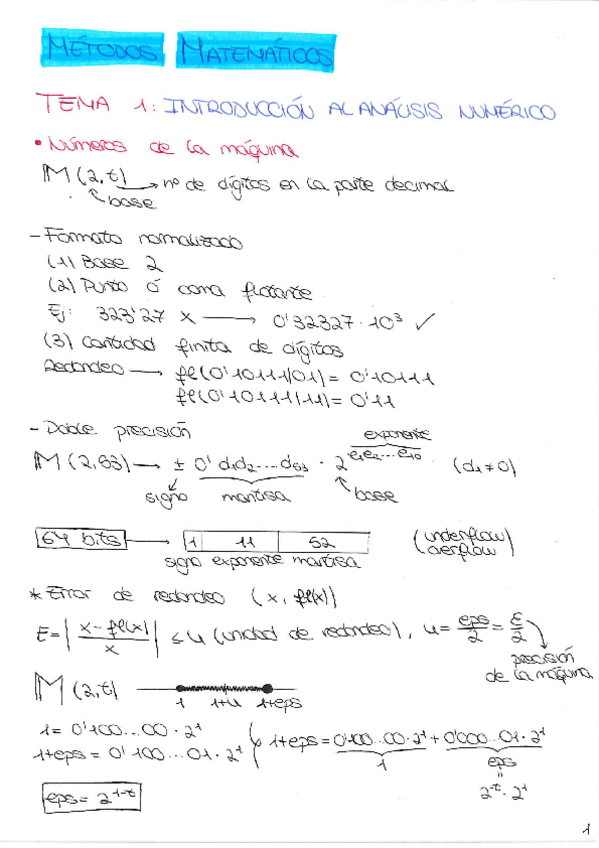 MÉTODOS MATEMÁTICOS
TEMA 1: INTRODUCCIÓN AL ANÁLISIS NUMÉRICO
• Números de la máquina
M(2,t) → nº de dígitos en la parte decimal
base
- Formato normalizado
(1) Base 2
(2) Punto ó coma flotante
Ej: 323'27 x → 0'32327·10³ ✓
(3) Cantidad finita de dígitos
Redondeo → fl(0'10111|01) = 0'10111
fl(0'10111|11) = 0'11
- Doble precisión
exponente
M(2,53) → ± 0' d₁d₂...d₅₃ · 2^e₁e₂...e₁₀ (d₁≠0)
signo mantisa base
64 bits → 1 11 52 (underflow
overflow)
signo exponente mantisa
* Error de redondeo (x, fl(x))
E = |x - fl(x) / x| ≤ u (unidad de redondeo), u = eps/2 = ε/2
precisión
de la máquina
M(2,t)
1 1+u 1+eps
1 = 0'100...00 · 2¹
1+eps = 0'100...01 · 2¹
1+eps = 0'100...00·2¹ + 0'000...01·2¹
1 eps
=
2^-t · 2¹
eps = 2^1-t
1